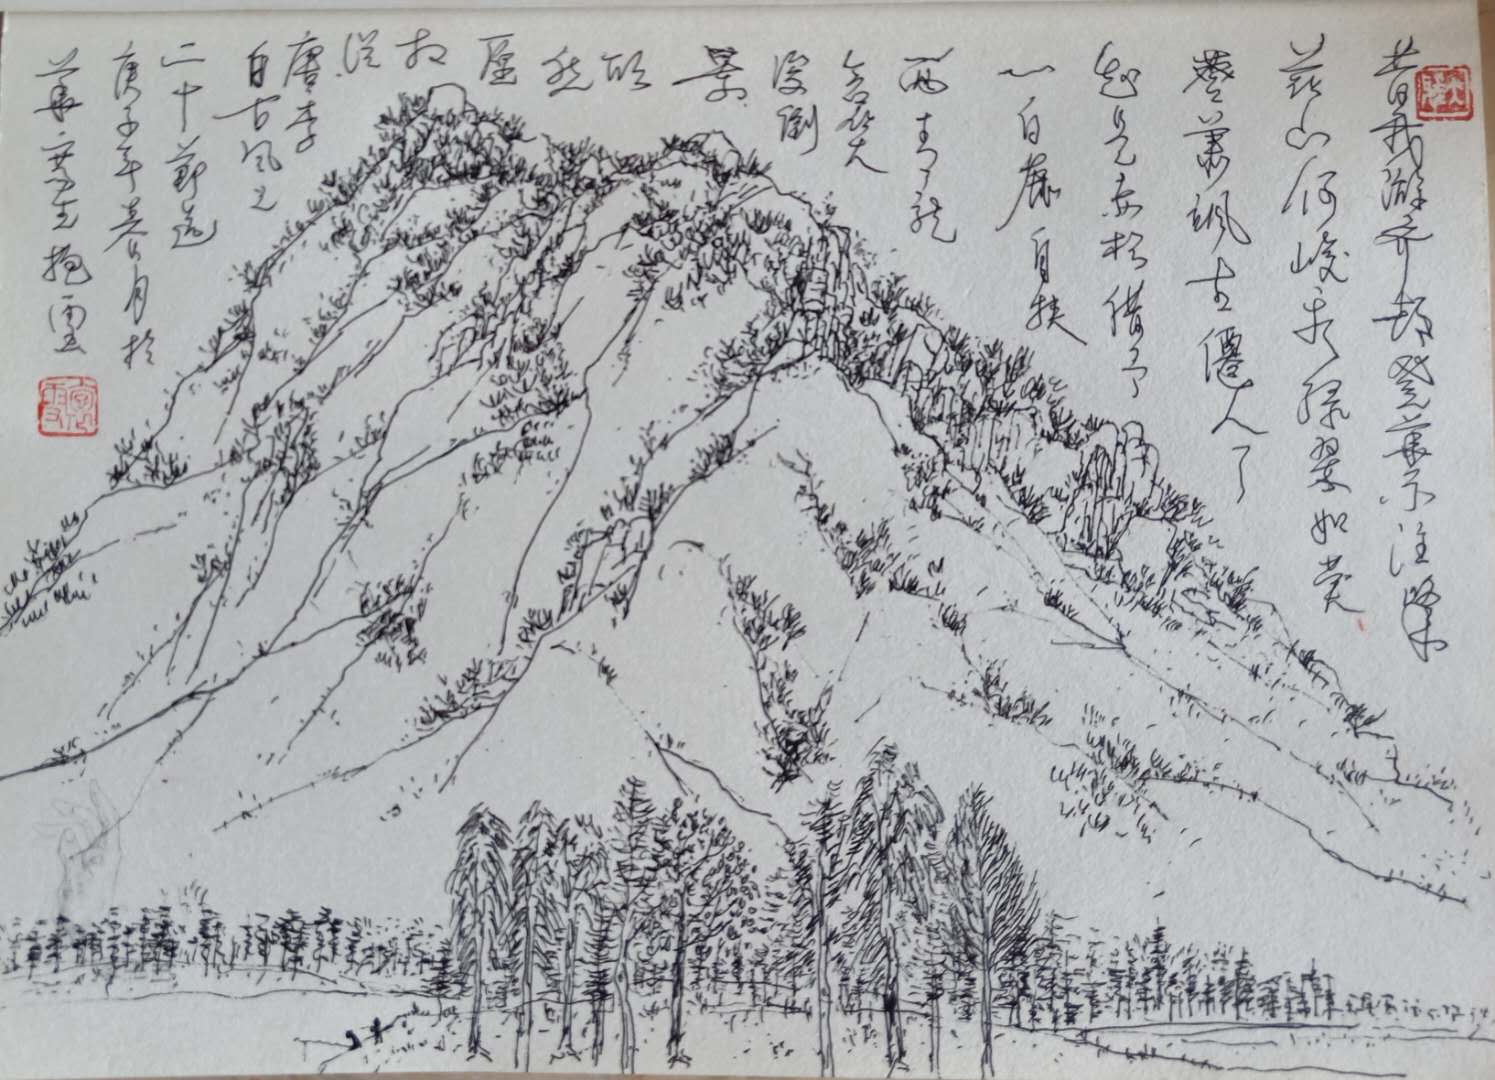 昔我游齐都登华不注峯
兹山何峻秀绿翠如芙
蓉萧飒古僊人了
知是赤松借予
一白鹿自挟
两青龙
含笑
凌倒
景
欣
然
愿
相
从
唐李
白古风之
二十节选
庚子年春月于